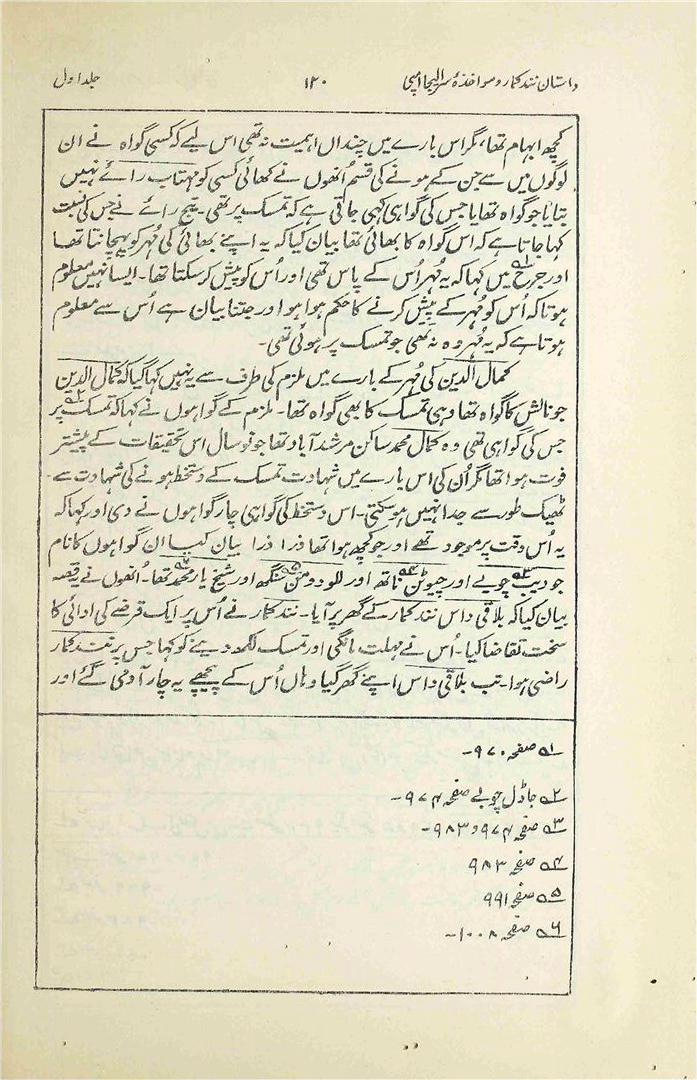 داستان نندکمار و مواخذۂ سر الیجا امپی ۱۲۰ جلد اول
کچھ ابہام تھا، مگر اس بارے میں چنداں اہمیت نہ تھی اس لیے کہ کسی گواہ نے ان
لوگوں میں سے جن کے ہونے کی قسم اُنھوں نے کھائی کسی کو مہتاب رائے نہیں
بتایا جو گواہ تھا یا جس کی گواہی کہی جاتی ہے کہ تمسک پر تھی۔ تیج رائے نے جس کی نسبت
کہا جاتا ہے کہ اس گواہ کا بھائی تھا بیان کیا کہ یہ اپنے بھائی کی مُہر کو پہچانتا تھا
اور جرح میں کہا کہ یہ مُہر اُس کے پاس تھی اور اُس کو پیش کر سکتا تھا۔ ایسا نہیں معلوم
ہوتا کہ اُس کو مُہر کے پیش کرنے کا حکم ہوا ہو اور جتنا بیان ہے اُس سے معلوم
ہوتا ہے کہ یہ مُہر وہ نہ تھی جو تمسک پر ہوئی تھی۔
کمال الدین کی مُہر کے بارے میں ملزم کی طرف سے یہ نہیں کہا گیا کہ کمال الدین
جو نالش کا گواہ تھا وہی تمسک کا بھی گواہ تھا۔ ملزم کے گواہوں نے کہا کہ تمسک پر
جس کی گواہی تھی وہ کمال محمد ساکن مرشدآباد تھا جو نو سال اس تحقیقات کے پیشتر
فوت ہوا تھا مگر اُن کی اس بارے میں شہادت تمسک کے دستخط ہونے کی شہادت سے
ٹھیک طور سے جدا نہیں ہو سکتی۔ اس دستخط کی گواہی چار گواہوں نے دی اور کہا کہ
یہ اُس وقت پر موجود تھے اور جو کچھ ہوا تھا ذرا ذرا بیان کیا ان گواہوں کا نام
جو دیب چوبے اور چیوٹن ناتھ اور للو دومن سنگھ اور شیخ یار محمد تھا۔ اُنھوں نے یہ قصہ
بیان کیا کہ بلاقی داس نندکمار کے گھر پر آیا۔ نندکمار نے اُس پر ایک قرضے کی ادائی کا
سخت تقاضا کیا۔ اُس نے مہلت مانگی اور تمسک لکھ دینے کو کہا جس پر نندکمار
راضی ہوا۔ تب بلاقی داس اپنے گھر گیا وہاں اُس کے پیچھے یہ چار آدمی گئے اور
۱؎ صفحہ ۹۷۰۔
۲؎ جادل چوبے صفحہ ۹۷۴۔
۳؎ صفحہ ۹۷۴ و ۹۸۳۔
۴؎ صفحہ ۹۸۳
۵؎ صفحہ ۹۹۱
۶؎ صفحہ ۱۰۰۸۔